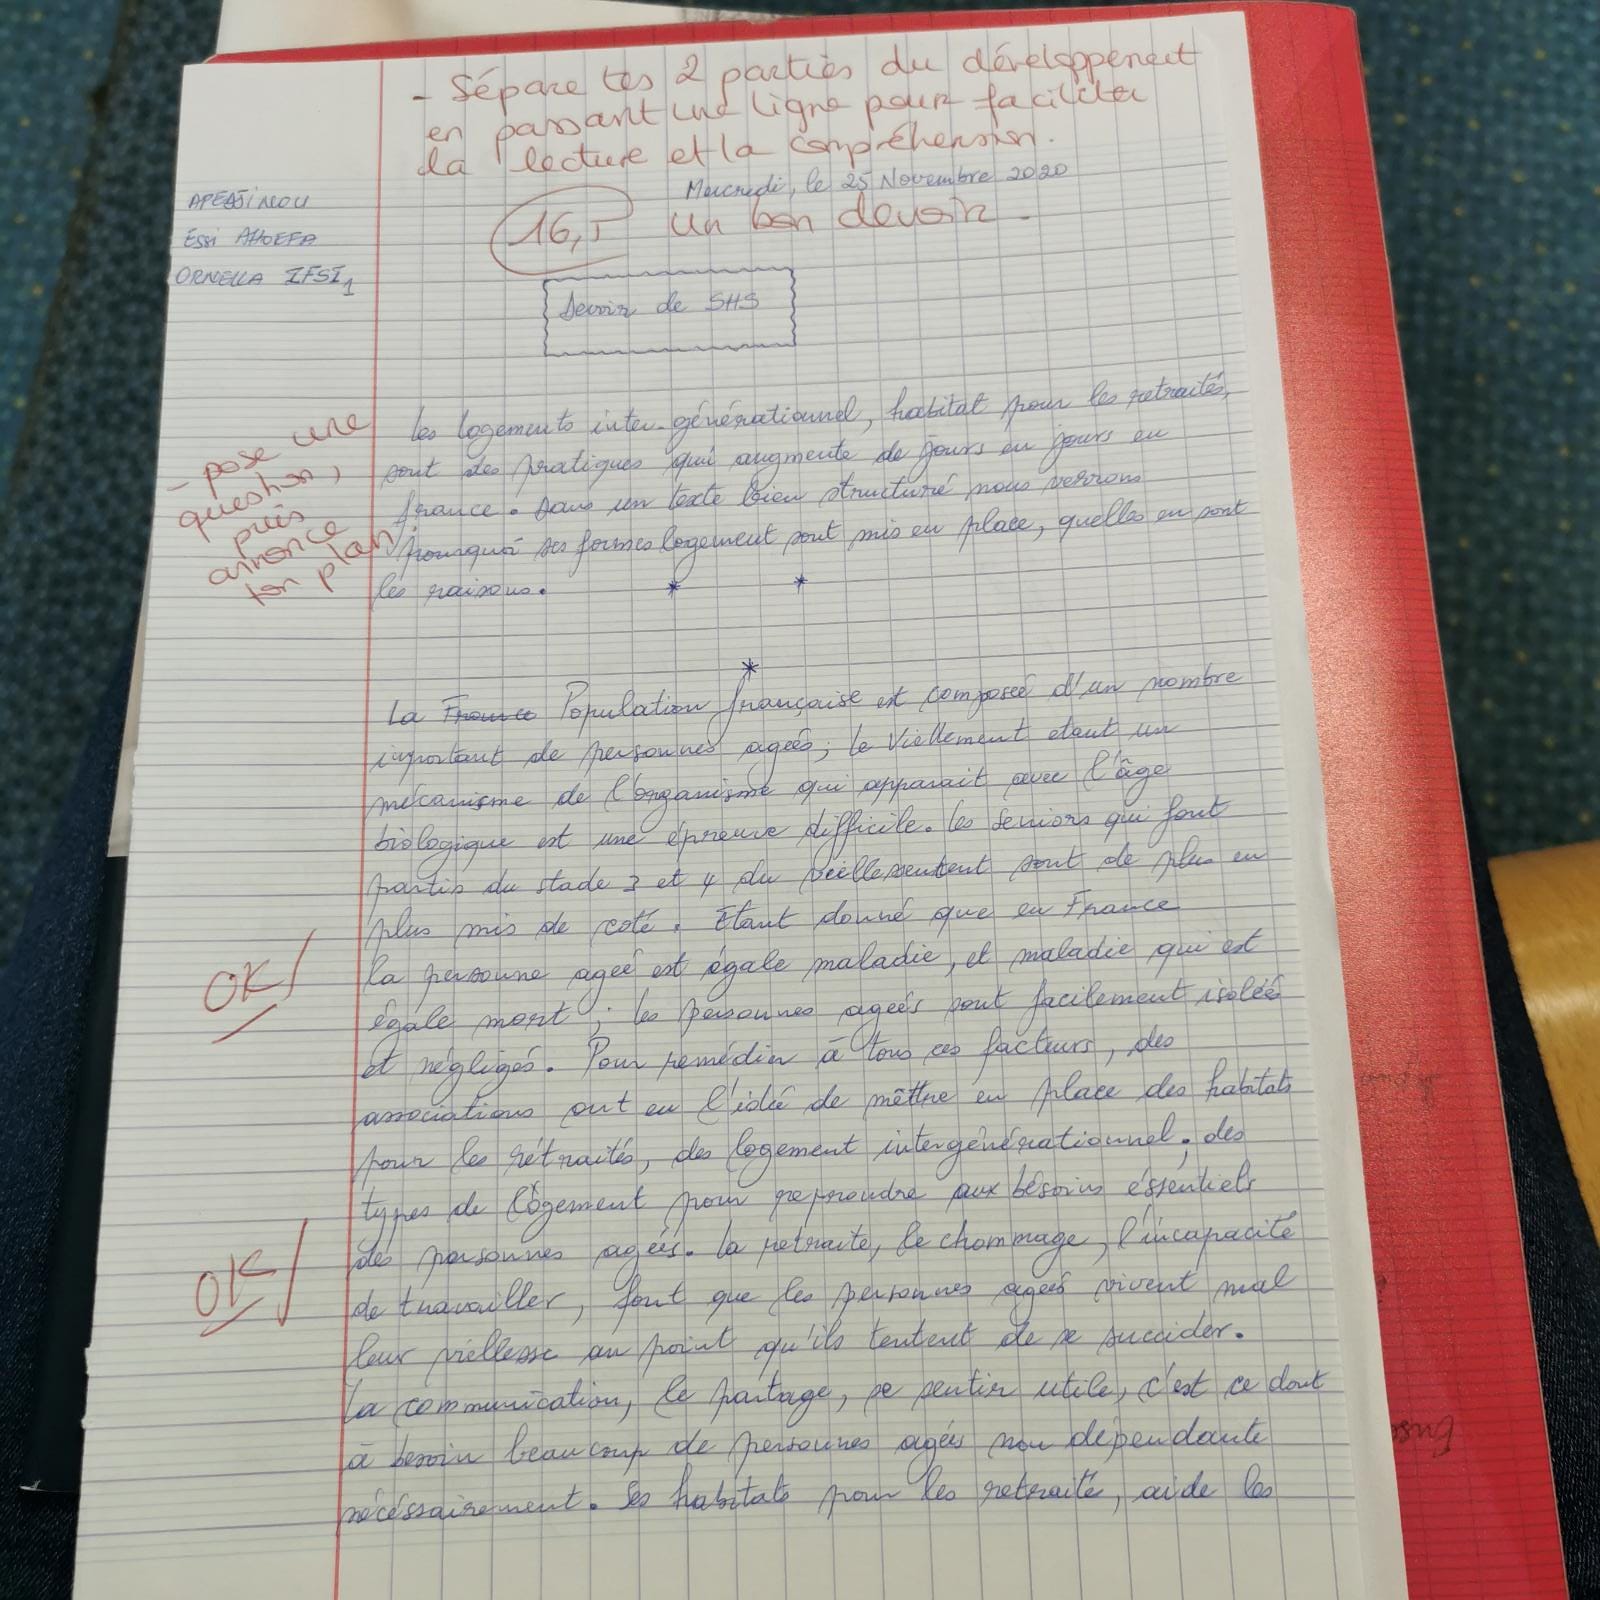 - Sépare tes 2 parties du développement
en passant une ligne pour faciliter
la lecture et la compréhension.
Mercredi, le 25 Novembre 2020
APEDJINOU
Essi AHOEFA
ORNELLA IFSI1
16,5 un bon devoir.
Devoir de SHS
- pose une
question,
puis
annonce
ton plan
Les logements inter-générationnel, habitat pour les retraités,
sont des pratiques qui augmente de jours en jours en
france. Dans un texte bien structuré nous verrons
pourquoi ses formes logement sont mis en place, quelles en sont
les raisons.
* *
*
La France Population française est composée d'un nombre
important de personnes ageés; le viellement etant un
mécanisme de l'organisme qui apparait avec l'âge
biologique est une épreuve difficile. les seniors qui font
partis du stade 3 et 4 du viellessement sont de plus en
plus mis de coté. Etant donné que en France
la personne ageé est égale maladie, et maladie qui est
égale mort; les personnes ageés sont facilement isoleés
et négligés. Pour remédier à tous ces facteurs, des
associations ont eu l'idée de mêttre en place des habitats
pour les rétraités, des logement intergénérationnel; des
types de logement pour reproudre aux bésoins éssentiels
des personnes ageés. la retraite, le chommage, l'incapacité
de travailler, font que les personnes ageés vivent mal
leur viellesse au point qu'ils tentent de se succider.
La communication, le partage, se sentir utile, c'est ce dont
à besoin beaucoup de personnes agées non dépendante
nécéssairement. Ses habitats pour les retraité, aide les
OK/
OK/